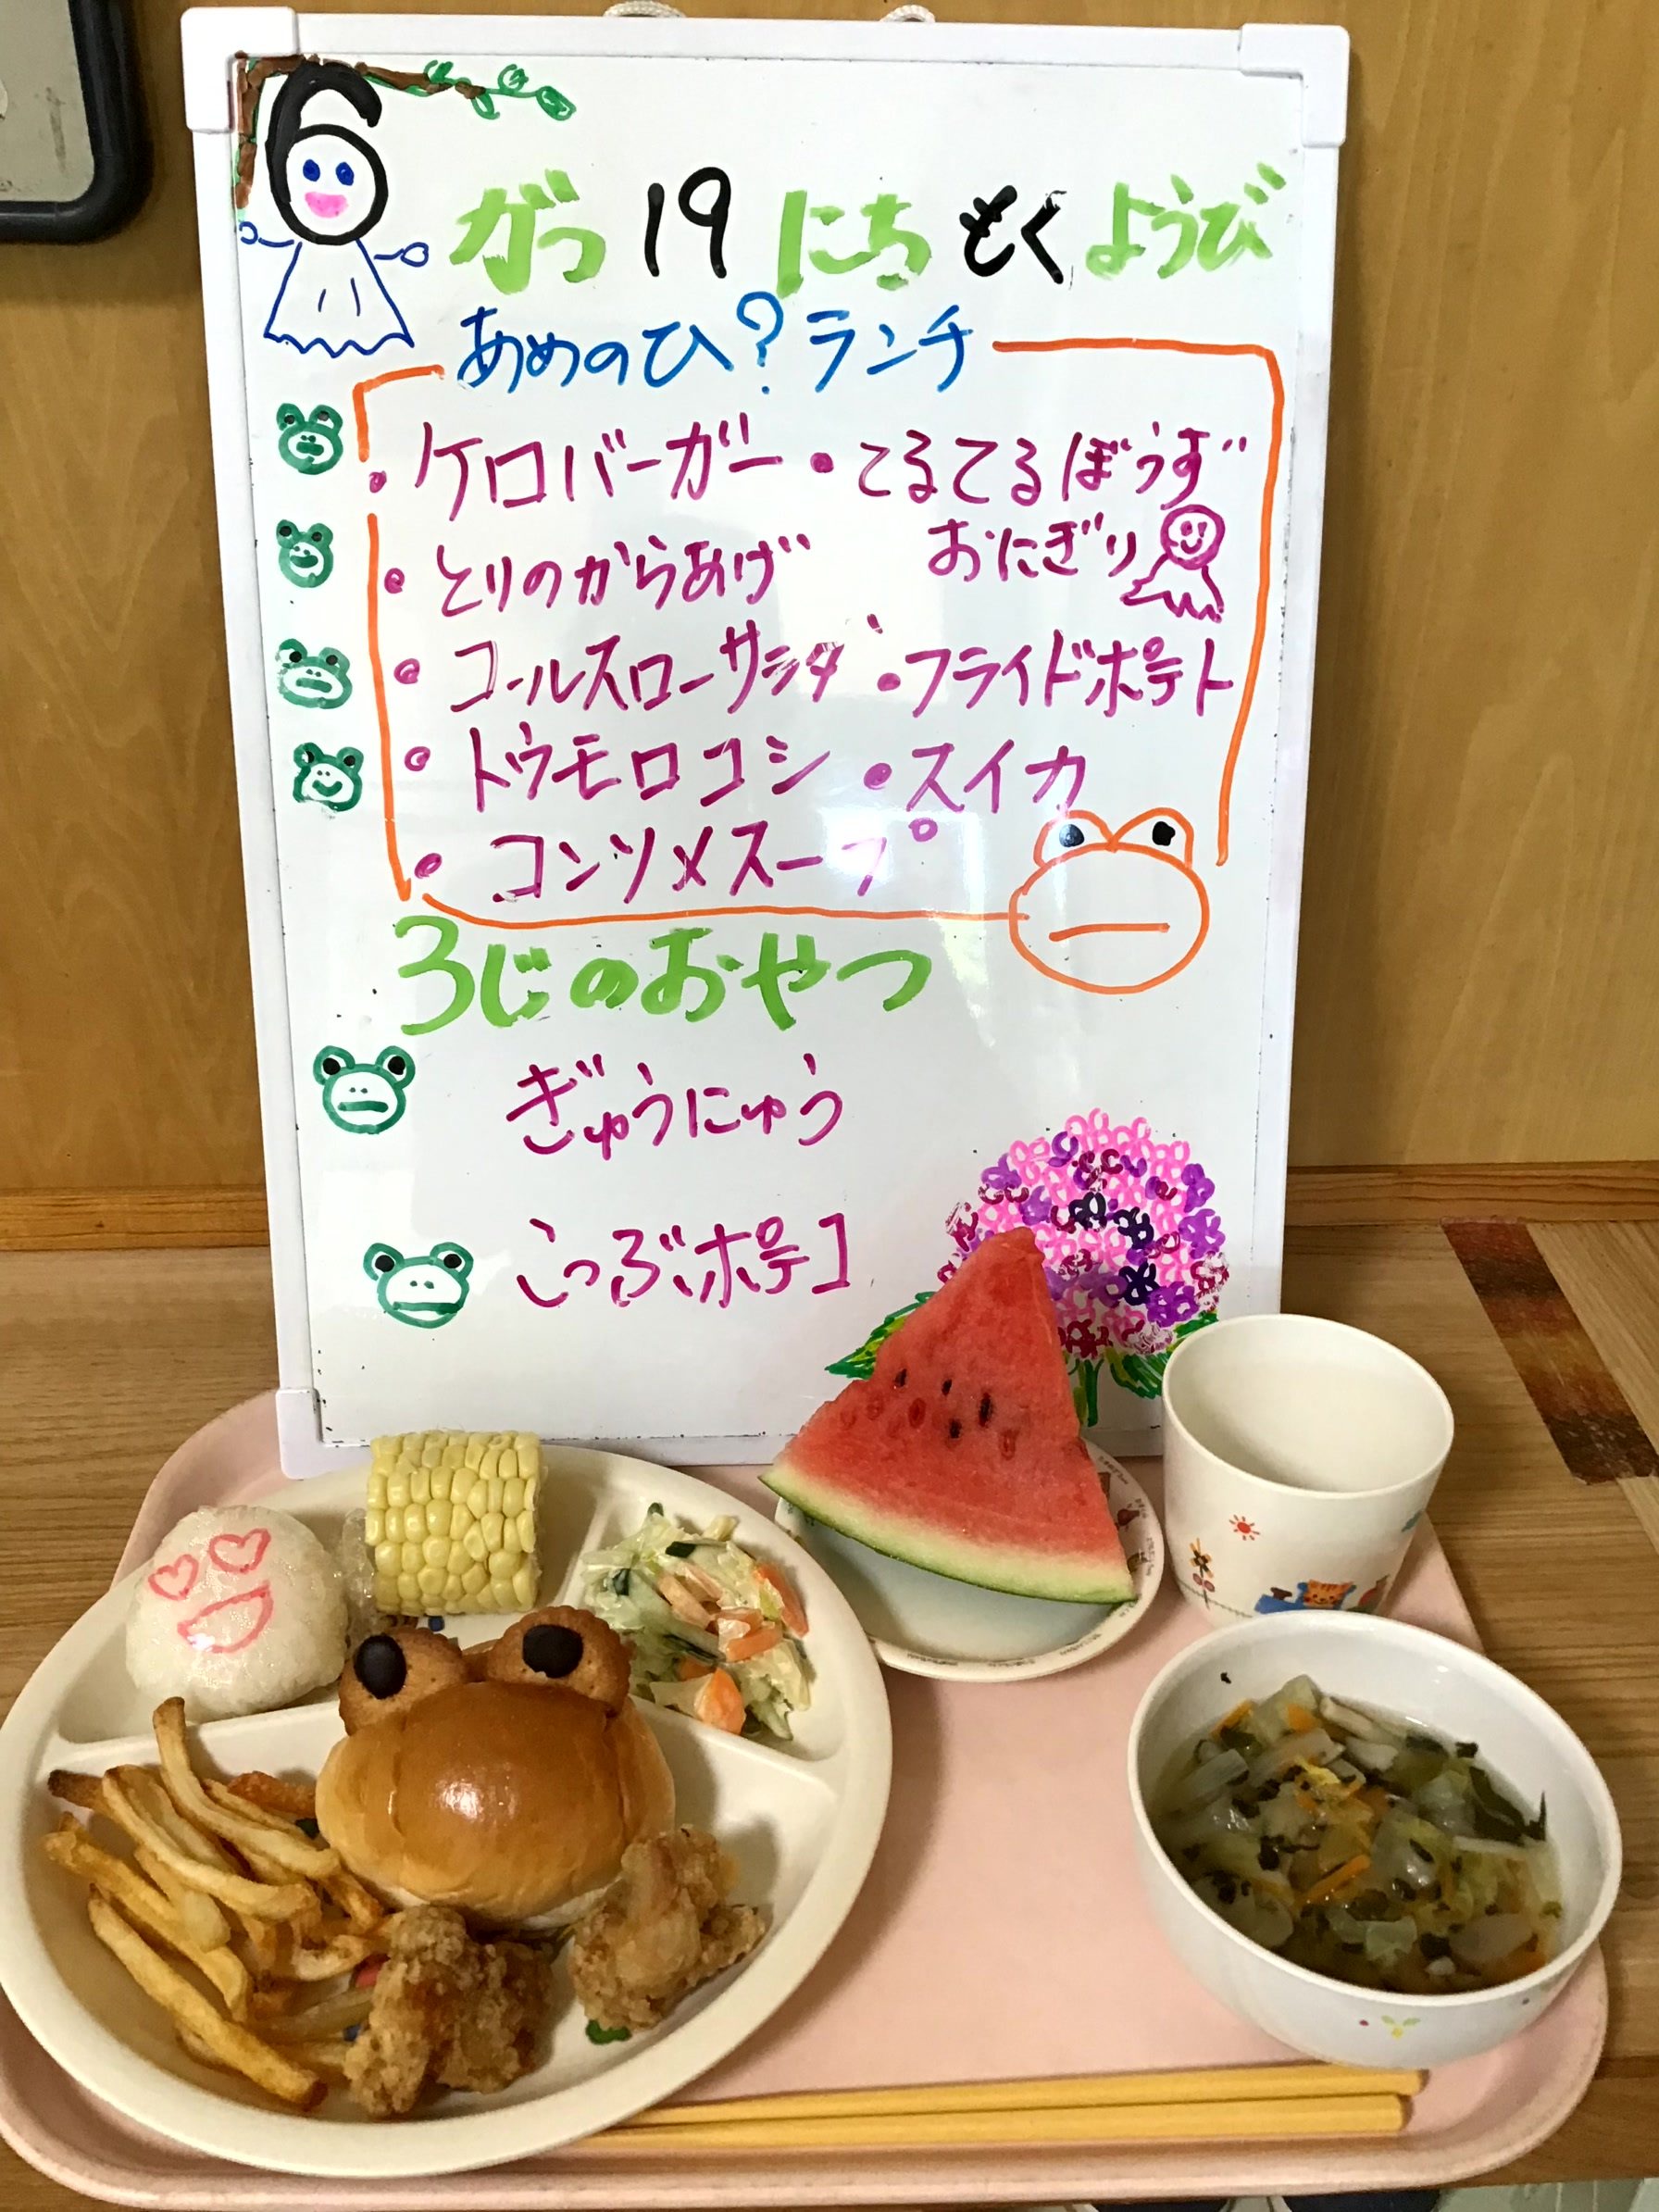 6がつ19にちもくようび
あめのひ?ランチ
・ケロバーガー・てるてるぼうず
おにぎり
・とりのからあげ
・コールスローサラダ・フライドポテト
・トウモロコシ・スイカ
・コンソメスープ
3じのおやつ
ぎゅうにゅう
こつぶポテコ